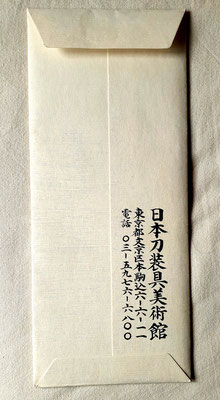 日本刀装具美術館
東京都文京区本駒込六ー六ー一一
電話 〇三ー五九七六ー六八〇〇